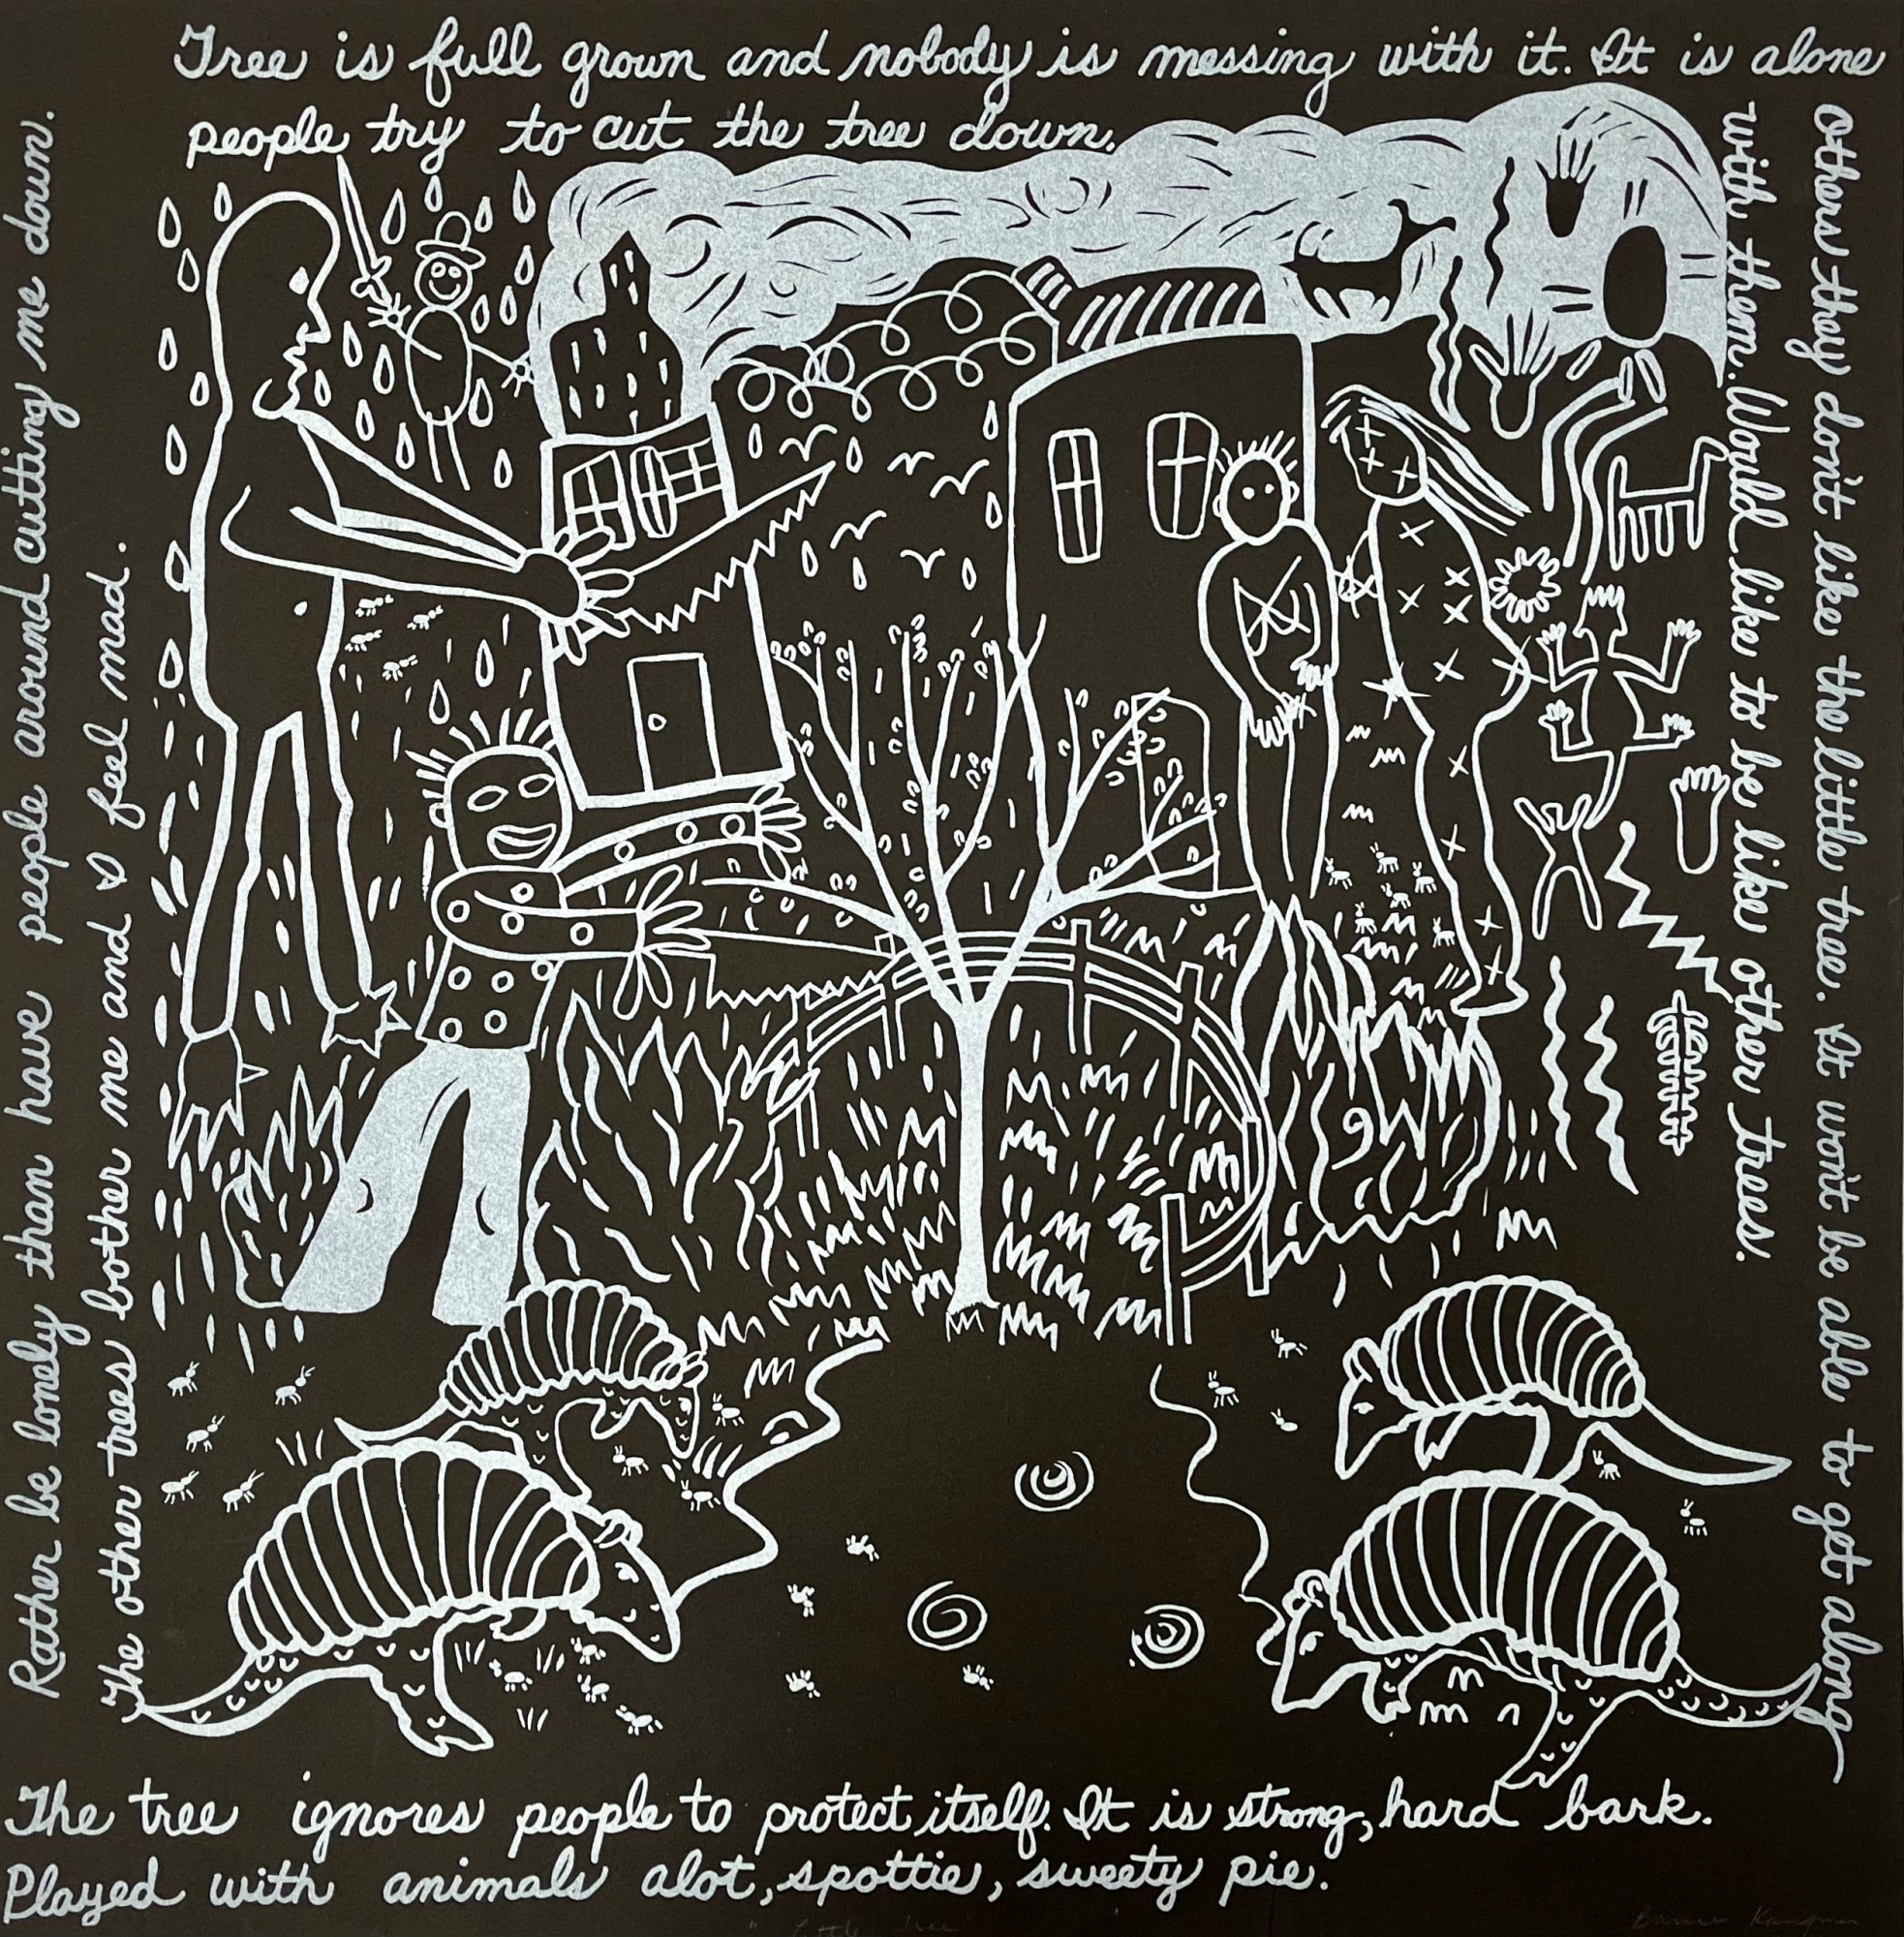 Tree is full grown and nobody is messing with it. It is alone
people try to cut the tree down.
Others they don't like the little tree. It won't be able to get along
with them. Would like to be like other trees.
The tree ignores people to protect itself. It is strong, hard bark.
Played with animals alot, spottie, sweety pie.
Rather be lonely than have people around cutting me down.
The other trees bother me and I feel mad.
"Little Tree"